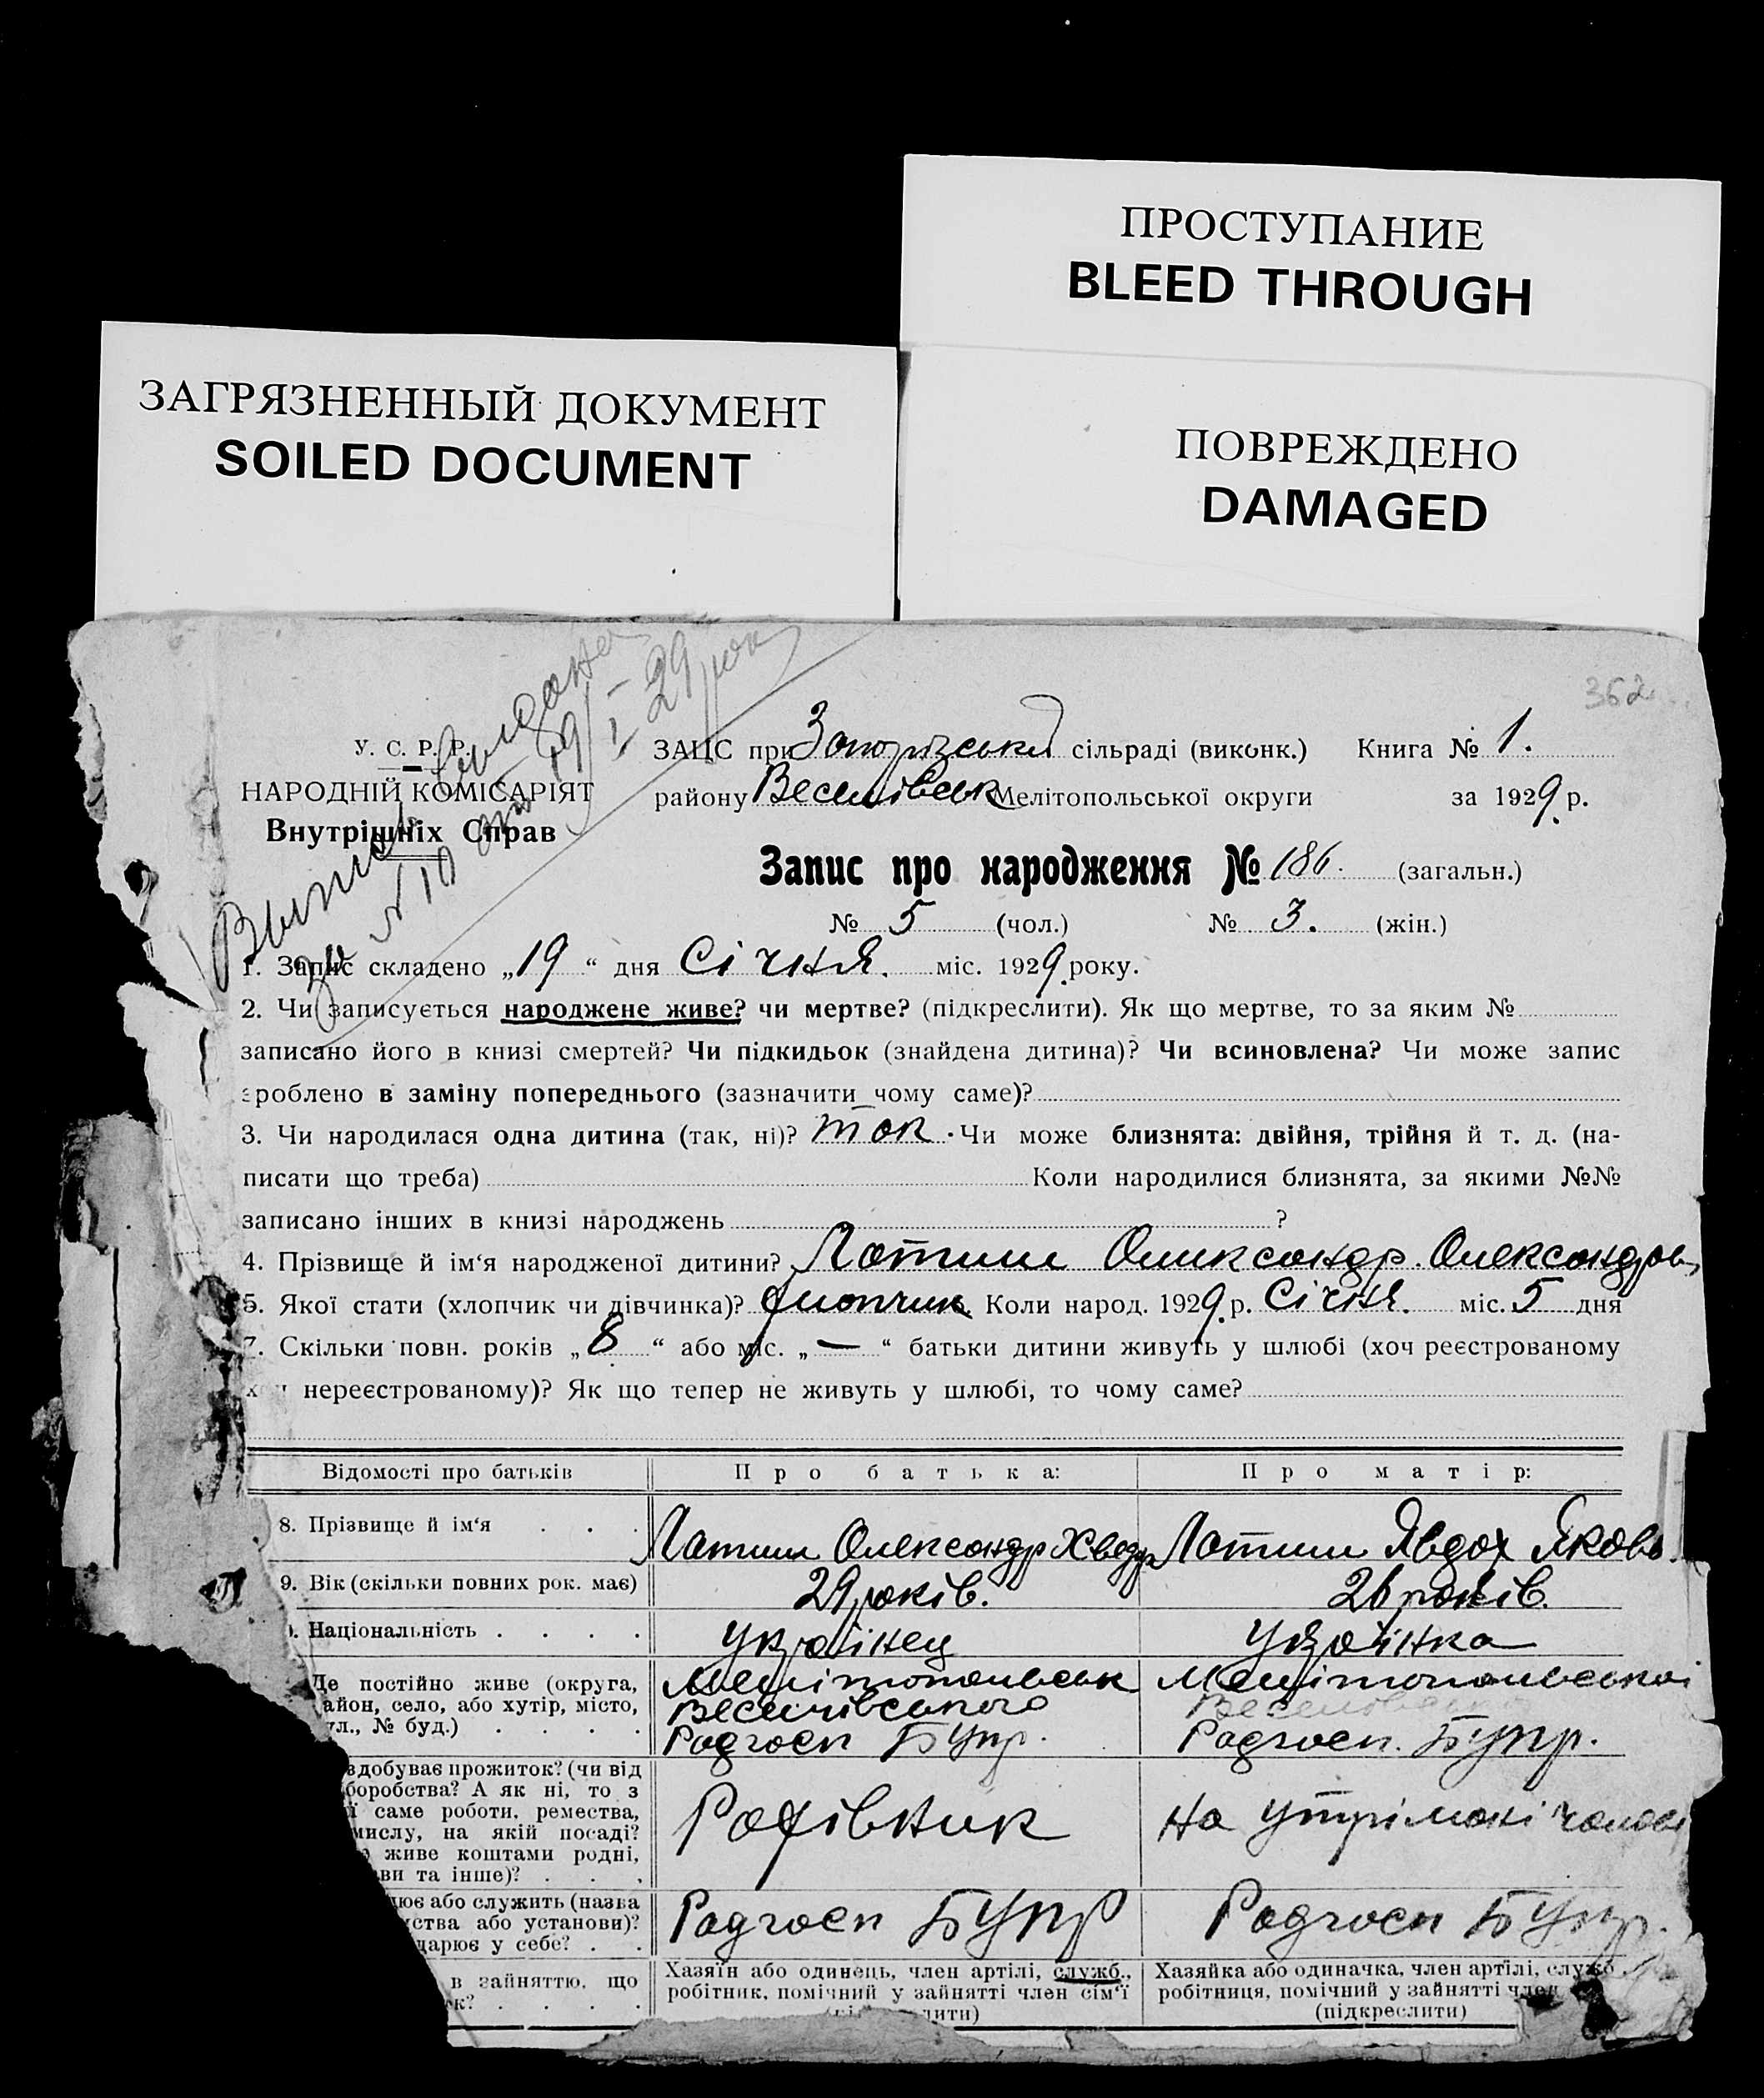 ПРОСТУПАНИЕ
BLEED THROUGH
ЗАГРЯЗНЕННЫЙ ДОКУМЕНТ
SOILED DOCUMENT
ПОВРЕЖДЕНО
DAMAGED
362
Выпись выдана
за № 10 от 19/I-29 рок
У. С. Р. Р.
НАРОДНІЙ КОМІСАРІЯТ
Внутрішніх Справ
ЗАЦС при Запорізській сільраді (виконк.) Книга № 1.
району Веселівськ Мелітопольської округи за 1929 р.
Запис про народження № 186. (загальн.)
№ 5 (чол.) № 3. (жін.)
1. Запис складено „19“ дня Січня. міс. 1929 року.
2. Чи записується народжене живе? чи мертве? (підкреслити). Як що мертве, то за яким №
записано його в книзі смертей? Чи підкидьок (знайдена дитина)? Чи всиновлена? Чи може запис
зроблено в заміну попереднього (зазначити чому саме)?
3. Чи народилася одна дитина (так, ні)? так. Чи може близнята: двійня, трійня й т. д. (на-
писати що треба) Коли народилися близнята, за якими №№
записано інших в книзі народжень ?
4. Прізвище й ім‘я народженої дитини? Латиш Олександр Олександров
5. Якої стати (хлопчик чи дівчинка)? Хлопчик Коли народ. 1929 р. Січня. міс. 5 дня
7. Скільки повн. років „8“ або міс. „—“ батьки дитини живуть у шлюбі (хоч реєстрованому
хоч нереєстрованому)? Як що тепер не живуть у шлюбі, то чому саме?
Відомості про батьків Про батька: Про матір:
8. Прізвище й ім‘я Латиш Олександр Хведр Латиш Явдох Яковл.
9. Вік (скільки повних рок. має) 29 років. 26 років.
Національність українец українка
Де постійно живе (округа,
айон, село, або хутір, місто,
ул., № буд.)
Мелітопольськ
Веселівського
Радгосп БУПР.
Мелітопольської
Веселівсько
Радгосп. БУПР.
здобуває прожиток? (чи від
боробства? А як ні, то з
ї саме роботи, ремества,
мислу, на якій посаді?
живе коштами родні,
ви та інше)?
Робівник
на утрімані чолові
ює або служить (назва
ства або установи)?
дарює у себе?
Радгосп БУПР
Радгосп БУПР.
в зайняттю, що
ок?
Хазяїн або одинець, член артілі, служб.,
робітник, помічний у зайнятті член сім‘ї
лити)
Хазяйка або одиначка, член артілі, служб.
робітниця, помічний у зайнятті член
(підкреслити)